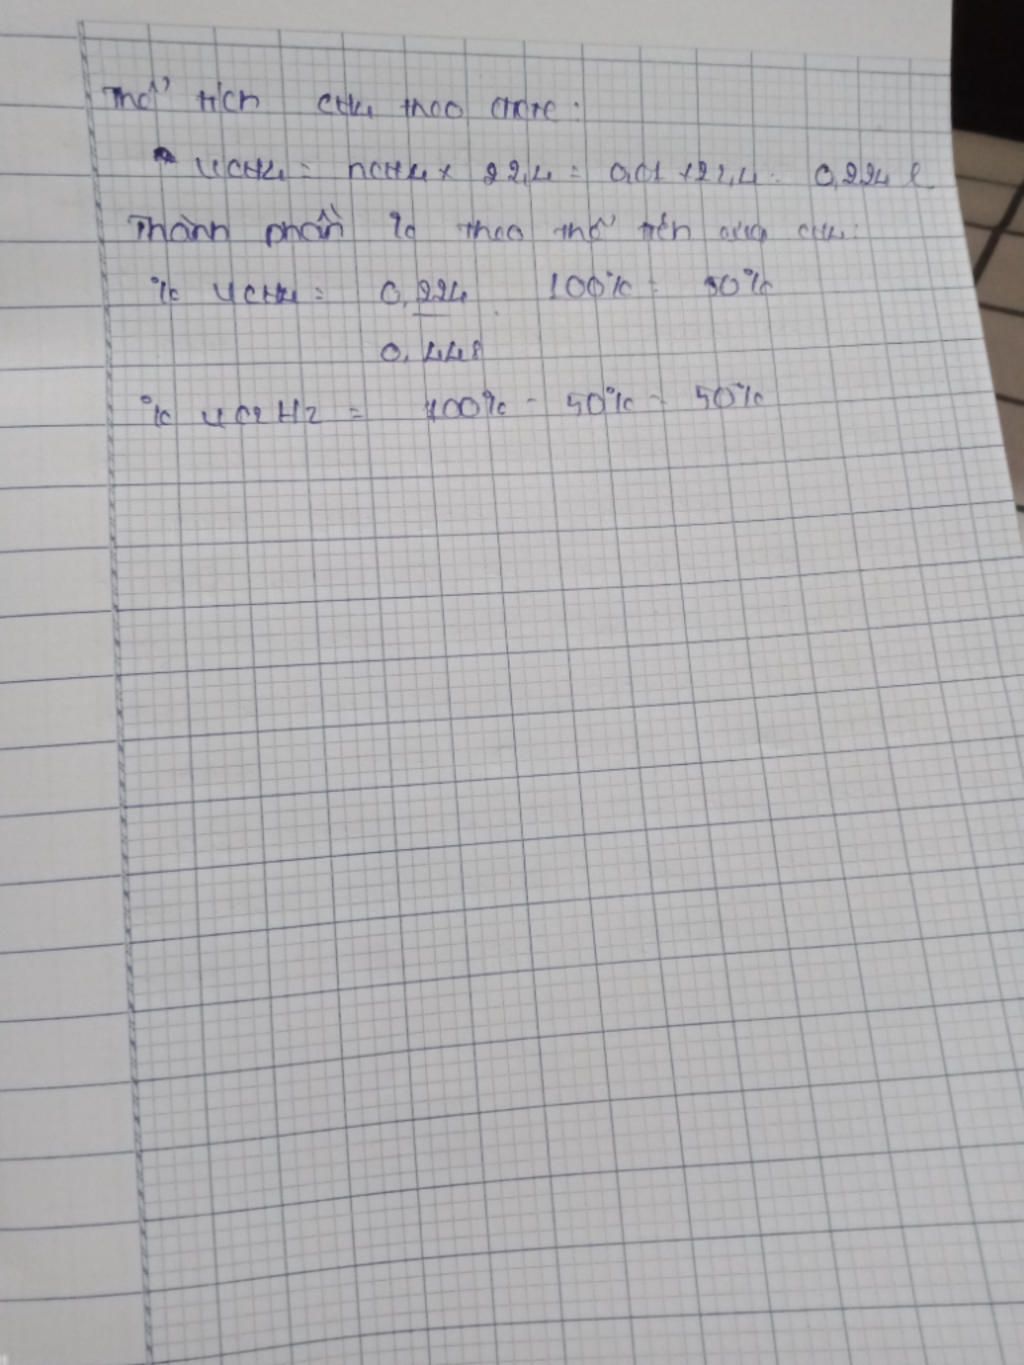 Thể tích CH4 theo
VCH4 = nCH4 x 22,4 = 0,01 x 22,4 = 0,224 l
Thành phần % theo thể tích của CH4:
% VCH4 = 0,224 . 100% = 50%
0,448
% VC2H2 = 100% - 50% = 50%